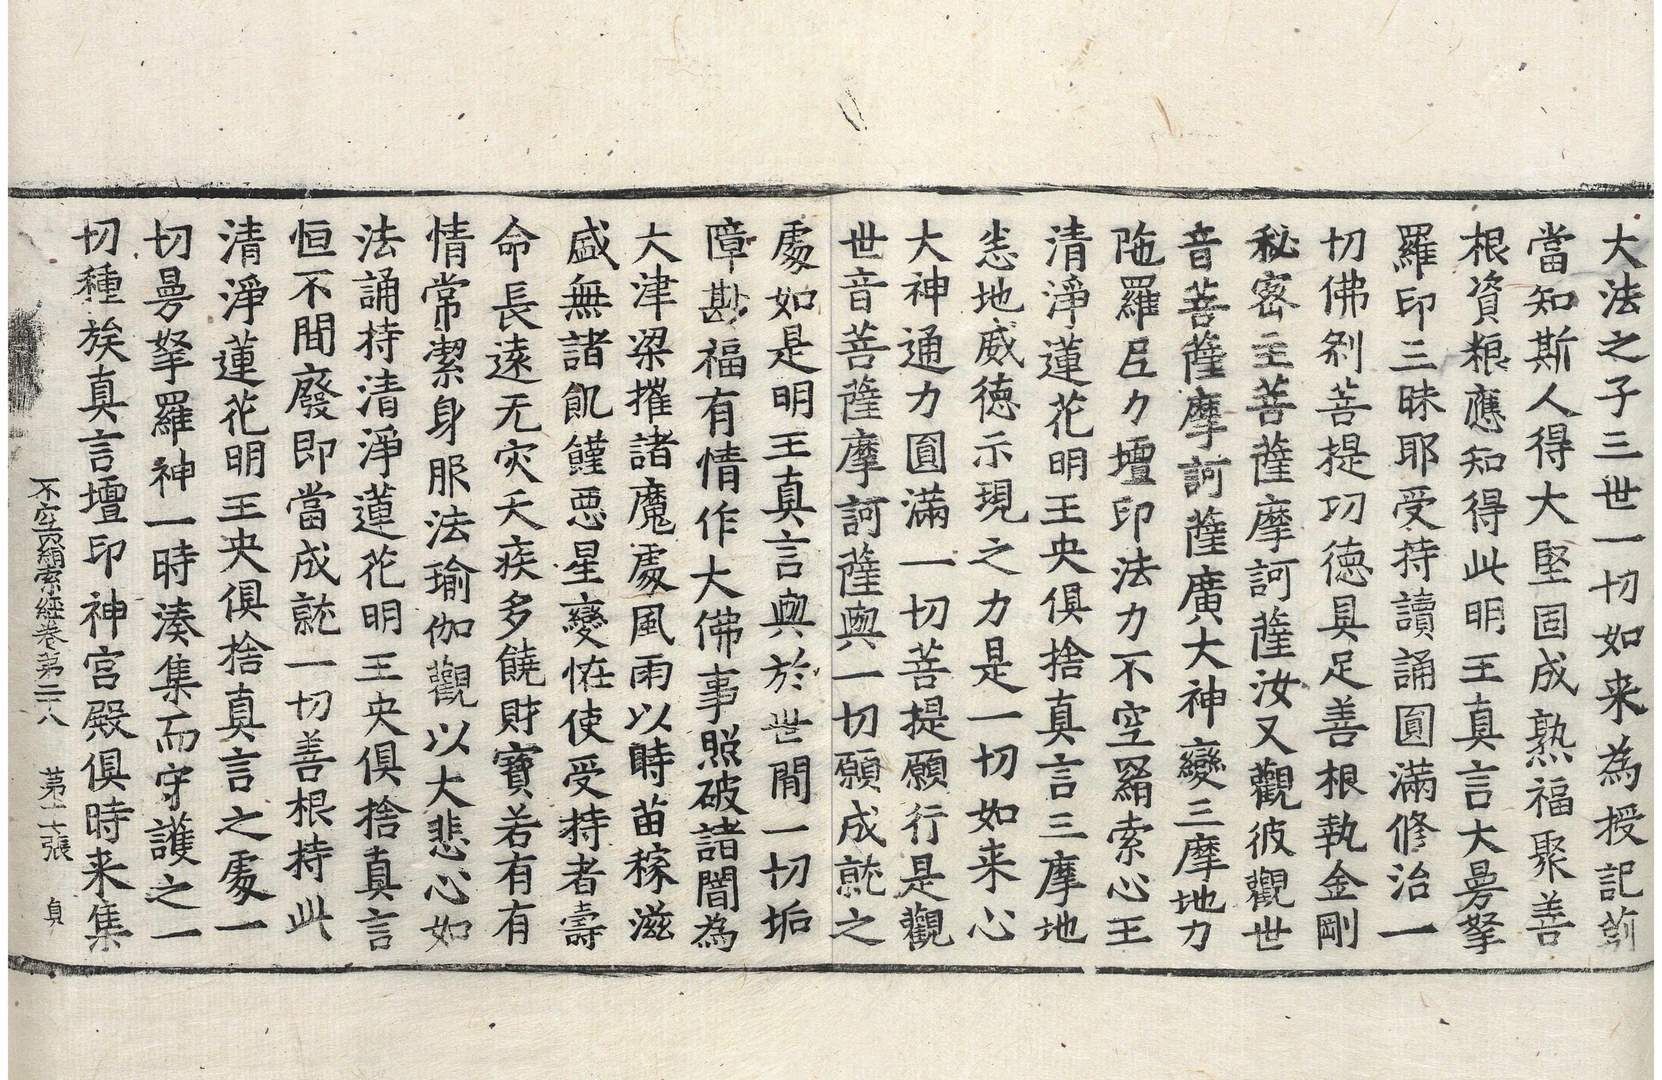 大法之子三世一切如来為授記莂
當知斯人得大堅固成熟福聚善
根資粮應知得此明王真言大曼拏
羅印三昧耶受持讀誦圓滿修治一
切佛刹菩提功德具足善根執金剛
秘密主菩薩摩訶薩汝又觀彼觀世
音菩薩摩訶薩廣大神變三摩地力
陁羅尼力壇印法力不空羂索心王
清淨蓮花明王央俱捨真言三摩地
悉地威德示現之力是一切如来心
大神通力圓滿一切菩提願行是觀
世音菩薩摩訶薩與一切願成就之
處如是明王真言與於世間一切垢
障尠福有情作大佛事照破諸闇為
大津梁摧諸魔處風雨以時苗稼滋
盛無諸飢饉惡星變恠使受持者壽
命長遠无灾夭疾多饒財寶若有有
情常潔身服法瑜伽觀以大悲心如
法誦持清淨蓮花明王央俱捨真言
恒不間廢即當成就一切善根持此
清淨蓮花明王央俱捨真言之處一
切曼拏羅神一時湊集而守護之一
切種族真言壇印神宮殿俱時来集
不空羂索經卷第二十八 第十六張 貞